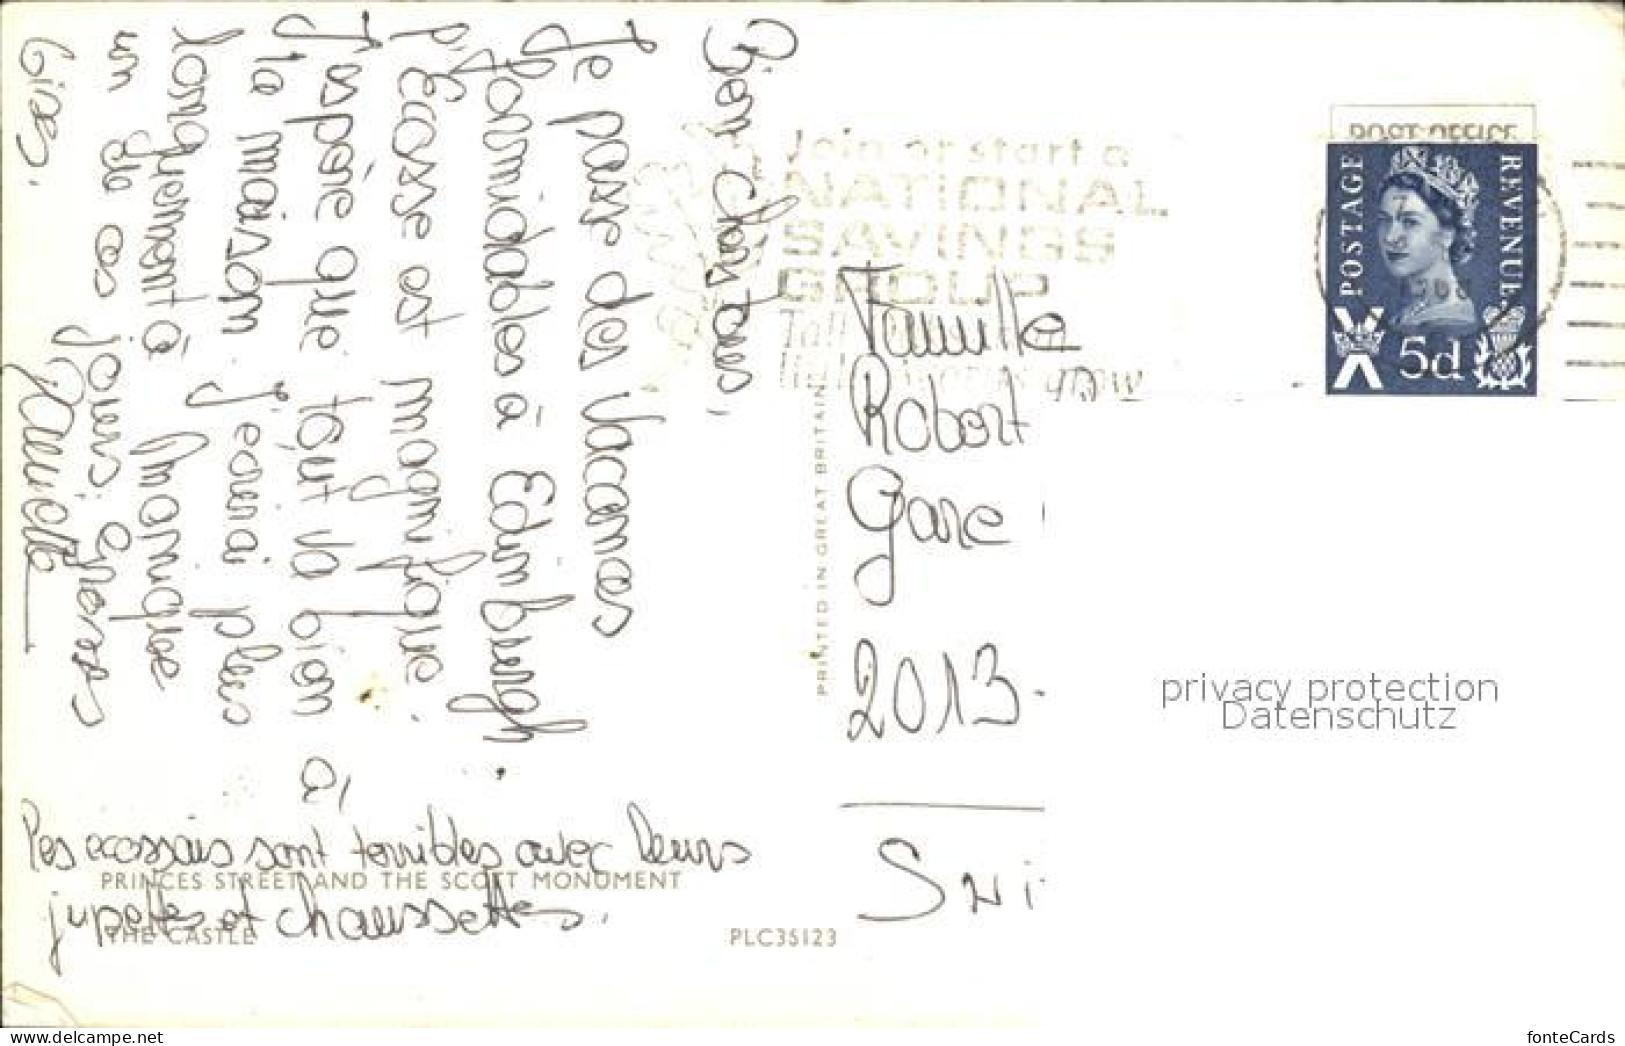 Bien chers tous,
Je passe des vacances
formidables à Edimburgh.
l'Ecosse est magnifique
J'espère que tout va bien à
la maison. J'écrirai plus
longuement à Monique
un de ces jours. grosses
bises.
Les ecossais sont terribles avec leurs
jupettes et chaussettes.
PRINCES STREET AND THE SCOTT MONUMENT
THE CASTLE
PLC35123
PRINTED IN GREAT BRITAIN
Join or start a
NATIONAL
SAVINGS
GROUP
grow
POST OFFICE
POSTAGE
REVENUE
5d
Famille
Robert
Gare
2013
Sui
privacy protection
Datenschutz
fonteCards